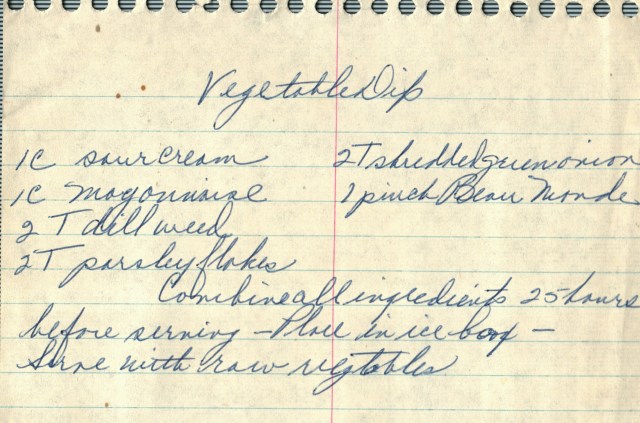 Vegetable Dip
1C sour cream
1C mayonnaise
2 T dill weed
2T parsley flakes
2T shredded green onion
1 pinch Beau Monde
Combine all ingredients 25 hours
before serving - Place in ice box -
Serve with raw vegtables